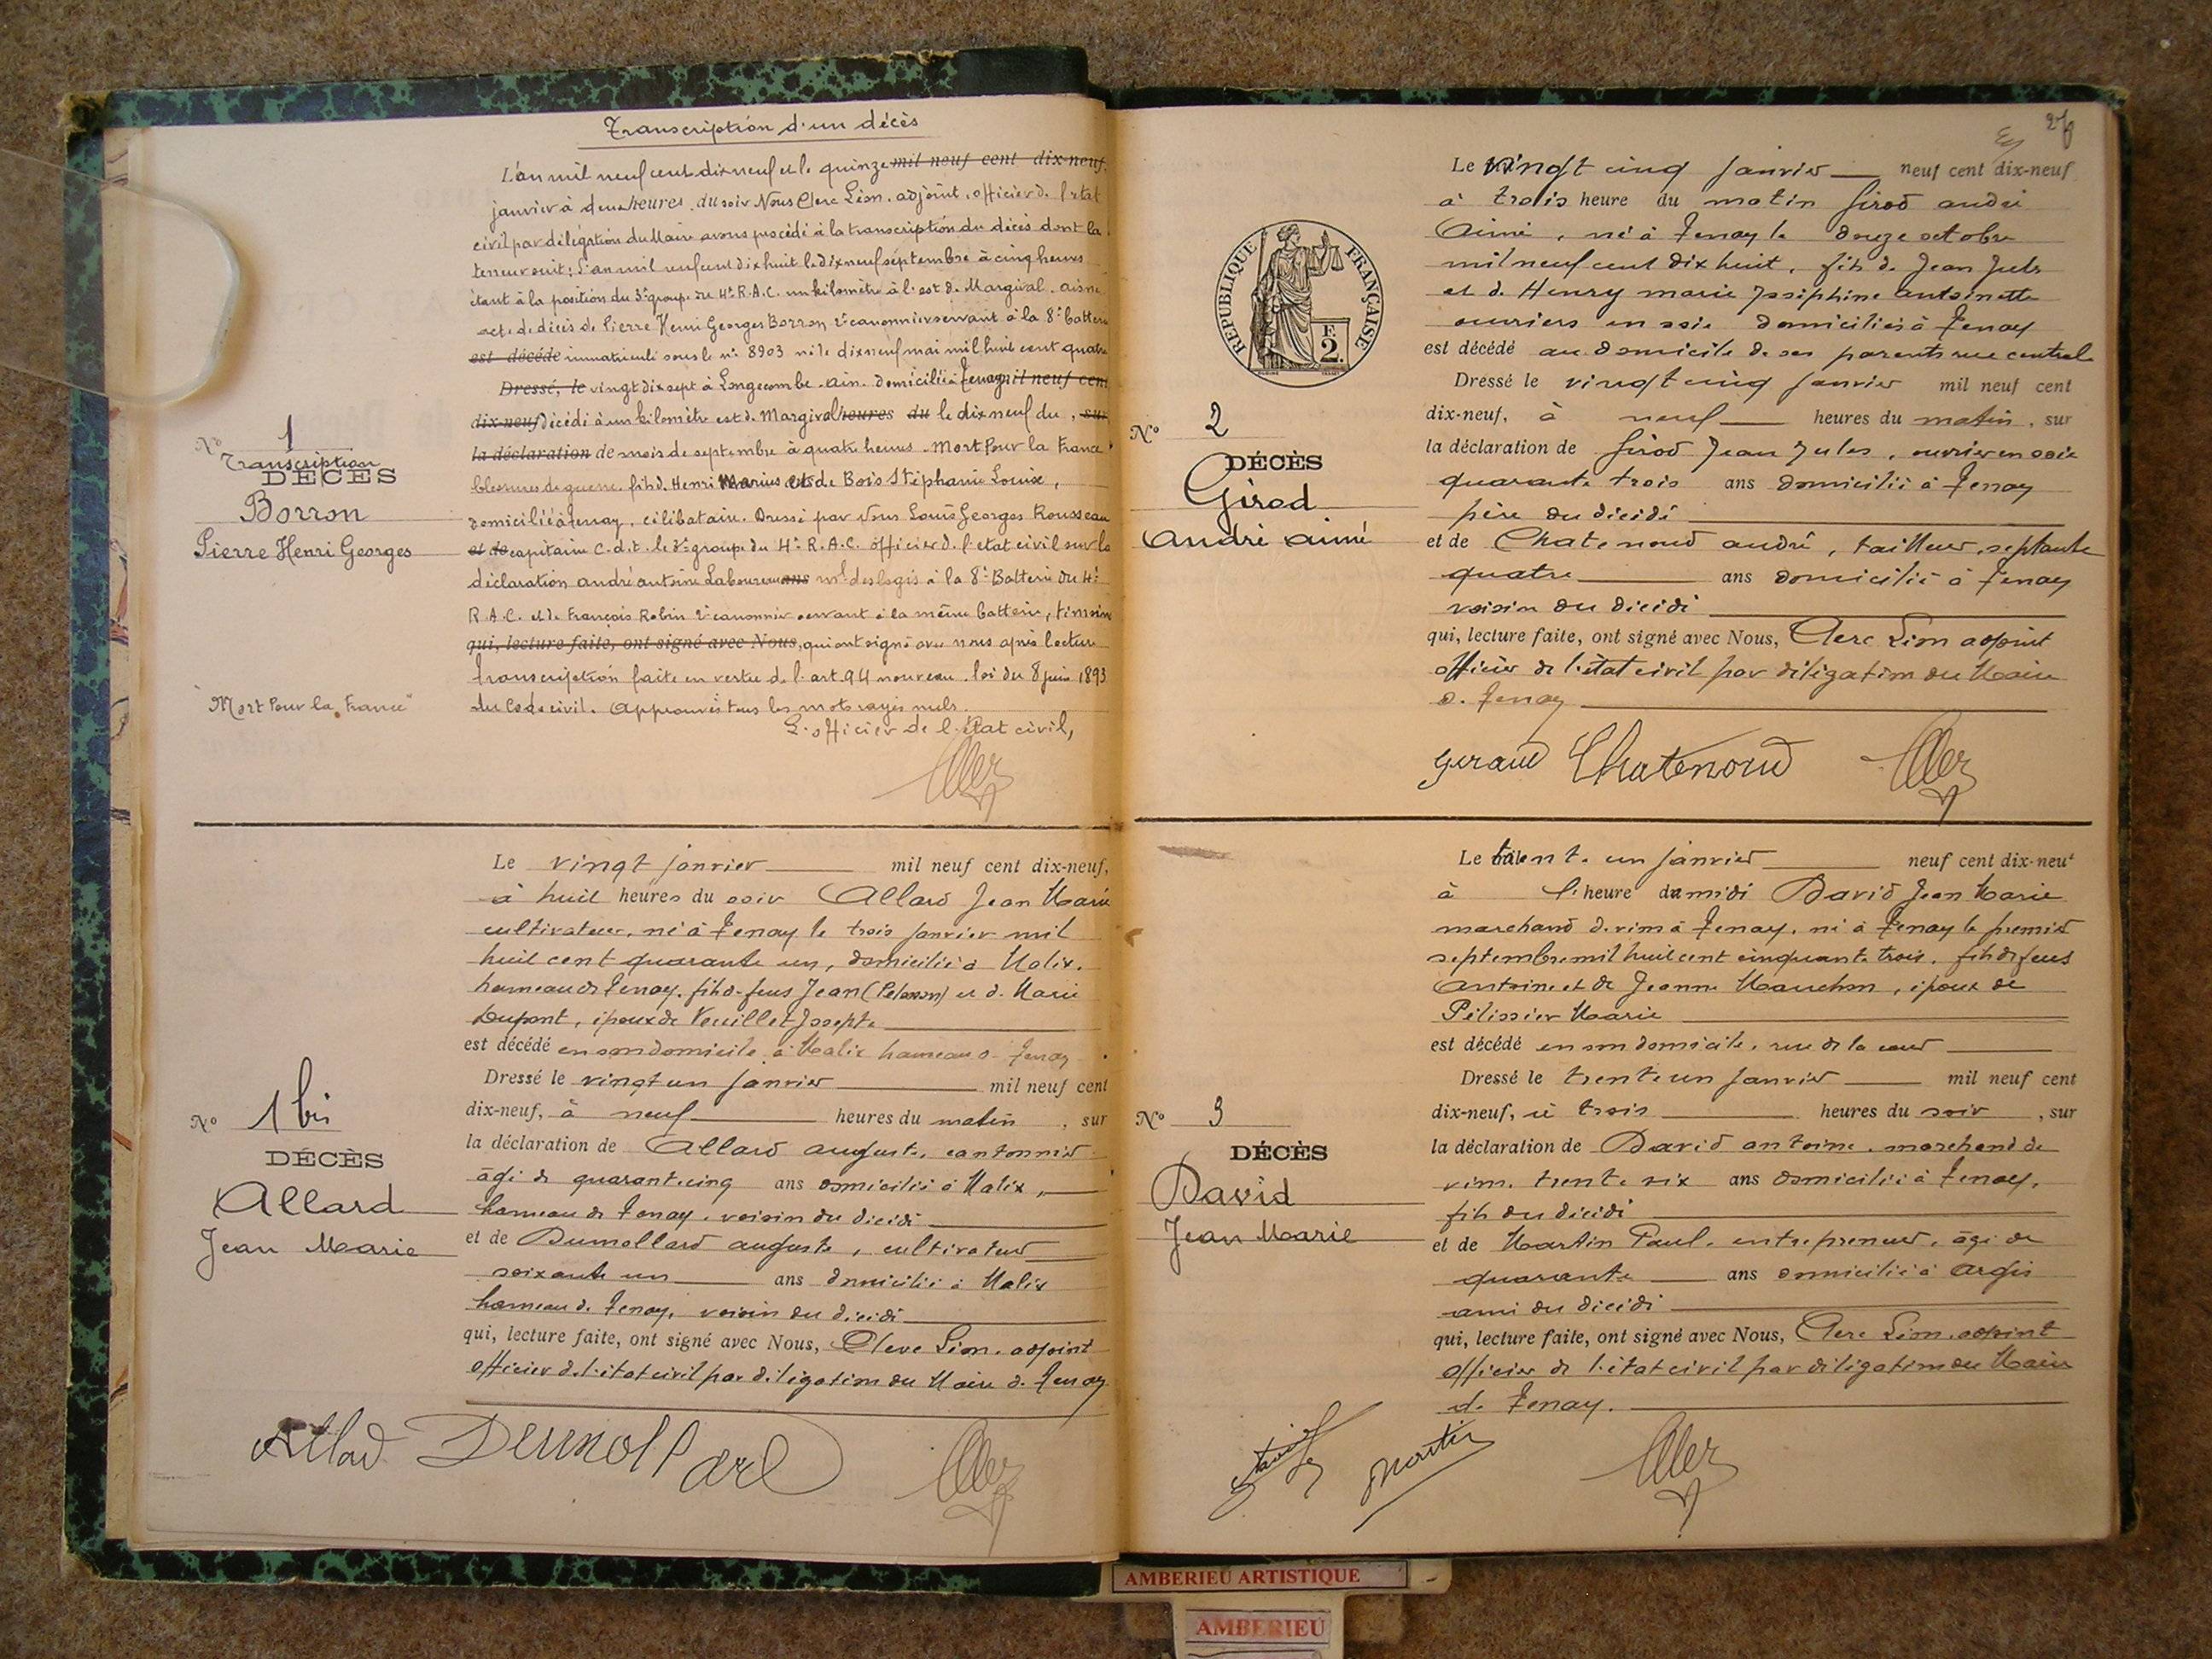 Transcription d'un décès
L'an mil neuf cent dix neuf et le quinze mil neuf cent dix-neuf,
janvier à deux heures du soir Nous Clerc Léon, adjoint, officier de l'état
civil par délégation du Maire avons procédé à la transcription du décès dont la
teneur suit: L'an mil neuf cent dix huit le dix neuf septembre à cinq heures
étant à la position du 3e groupe du 4e R.A.C. un kilomètre à l'est de Margival. aisne
acte de décès de Pierre Henri Georges Borron 2e canonnier servant à la 8e batterie
est décédé immatriculé sous le n° 8903 né le dix neuf mai mil huit cent quatre
Dressé, le vingt dix sept à Longecombe. ain. domicilié à Tenay mil neuf cent
dix-neuf décédé à un kilomètre est de Margival heures du le dix neuf du , sur
la déclaration de mois de septembre à quatre heures. Mort Pour la France
blessures de guerre. fils de Henri Marius et de Bois Stéphanie Louise,
domicilié à Tenay, célibataire. Dressé par Nous Louis Georges Rousseau
et de capitaine C.d.t. le 3e groupe du 4e R.A.C. officier de l'état civil sur la
déclaration andré antoine Laboureau ans ml des logis à la 8e Batterie du 4e
R.A.C. et de François Robin 2e canonnier servant à la même batterie, témoins
qui, lecture faite, ont signé avec Nous, qui ont signé avec nous après lecture
transcription faite en vertu de l'art. 94 nouveau. loi du 8 juin 1893
du Code civil. Approuvés tous les mots rayés nuls.
L'officier de l'état civil,
N° 1
Transcription
DÉCÈS
Borron
Pierre Henri Georges
"Mort Pour la France"
Le vingt janvier mil neuf cent dix-neuf,
à huit heures du soir Allard Jean Marie
cultivateur, né à Tenay le trois janvier mil
huit cent quarante un, domicilié à Malix.
hameau de Tenay. fils de feus Jean et de Marie
Dupont, époux de Veuillet Josepte
est décédé en son domicile à Malix hameau de Tenay
Dressé le vingt un janvier mil neuf cent
dix-neuf, à neuf heures du matin , sur
la déclaration de Allard auguste, cantonnier
âgé de quarante cinq ans domicilié à Malix,
hameau de Tenay. voisin du décédé
et de Dumollard auguste, cultivateur
soixante un ans domicilié à Malix
hameau de Tenay, voisin du décédé
qui, lecture faite, ont signé avec Nous, Clerc Léon. adjoint
officier de l'état civil par délégation du Maire de Tenay.
N° 1 bis
DÉCÈS
Allard
Jean Marie
Allard Dumollard Clerc
Le vingt cinq janvier neuf cent dix-neuf
à trois heure du matin Girod andré
Aimé, né à Tenay le douze octobre
mil neuf cent dix huit, fils de Jean Jules
et de Henry marie Joséphine antoinette
ouvriers en soie domiciliés à Tenay
est décédé au domicile de ses parents rue centrale
Dressé le vingt cinq janvier mil neuf cent
dix-neuf, à neuf heures du matin, sur
la déclaration de Girod Jean Jules, ouvrier en soie
quarante trois ans domicilié à Tenay
père du décédé
et de Chatenoud andré, tailleur, septante
quatre ans domicilié à Tenay
voisin du décédé
qui, lecture faite, ont signé avec Nous, Clerc Léon adjoint
officier de l'état civil par délégation du Maire
de Tenay
REPUBLIQUE FRANÇAISE
F.
2.
N° 2
DÉCÈS
Girod
André aimé
Chatenoud Clerc
Le trente un janvier neuf cent dix-neuf
à l'heure de midi David Jean Marie
marchand de vin à Tenay. né à Tenay le premier
septembre mil huit cent cinquante trois. fils de feus
Antoine et de Jeanne Mauchon, époux de
Pélissier Marie
est décédé en son domicile, rue de la cour
Dressé le trente un janvier mil neuf cent
dix-neuf, à trois heures du soir , sur
la déclaration de David antoine. marchand de
vin. trente six ans domicilié à Tenay,
fils du décédé
et de Martin Paul. entrepreneur, âgé de
quarante ans domicilié à Argis
ami du décédé
qui, lecture faite, ont signé avec Nous, Clerc Léon. adjoint
officier de l'état civil par délégation du Maire
de Tenay.
N° 3
DÉCÈS
David
Jean Marie
Martin Clerc
AMBERIEU ARTISTIQUE
AMBERIEU